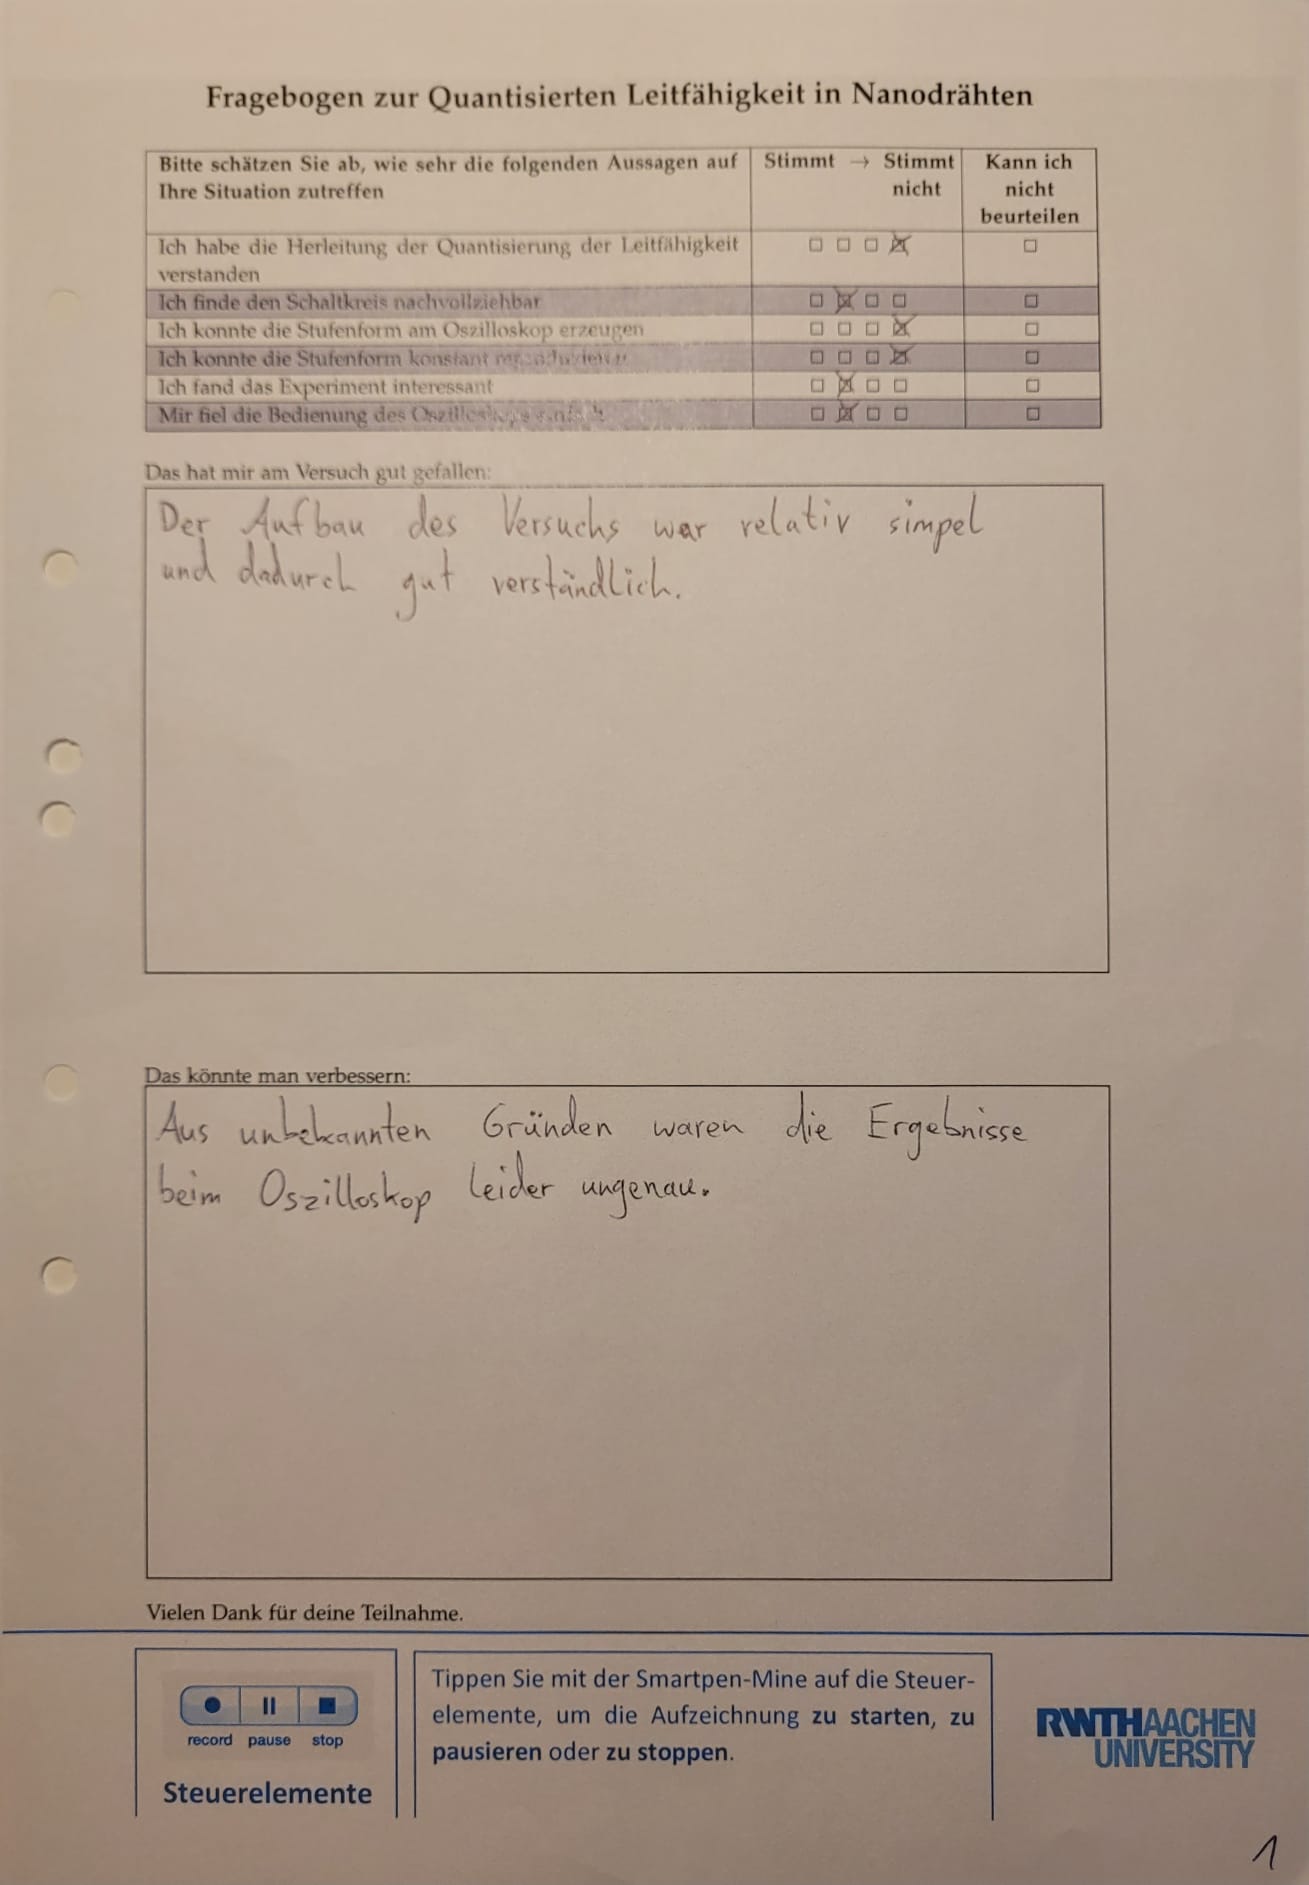 Fragebogen zur Quantisierten Leitfähigkeit in Nanodrähten
Bitte schätzen Sie ab, wie sehr die folgenden Aussagen auf
Ihre Situation zutreffen
Stimmt → Stimmt
nicht
Kann ich
nicht
beurteilen
Ich habe die Herleitung der Quantisierung der Leitfähigkeit
verstanden
Ich finde den Schaltkreis nachvollziehbar
Ich konnte die Stufenform am Oszilloskop erzeugen
Ich konnte die Stufenform konstant
Ich fand das Experiment interessant
Mir fiel die Bedienung des
Das hat mir am Versuch gut gefallen:
Der Aufbau des Versuchs war relativ simpel
und dadurch gut verständlich.
Das könnte man verbessern:
Aus unbekannten Gründen waren die Ergebnisse
beim Oszilloskop leider ungenau.
Vielen Dank für deine Teilnahme.
record pause stop
Steuerelemente
Tippen Sie mit der Smartpen-Mine auf die Steuer-
elemente, um die Aufzeichnung zu starten, zu
pausieren oder zu stoppen.
RWTHAACHEN
UNIVERSITY
1